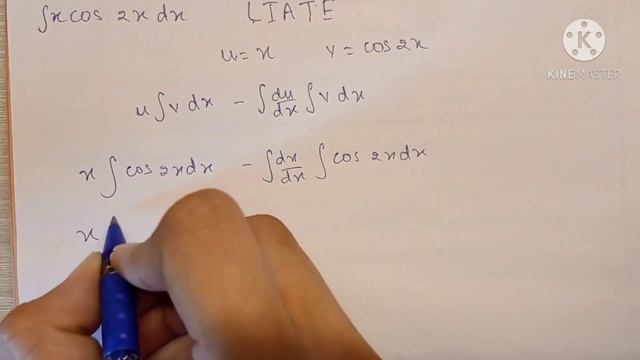 ∫x cos 2x dx LIATE
u = x v = cos 2x
u ∫ v dx - ∫ du/dx ∫ v dx
x ∫ cos 2x dx - ∫ dx/dx ∫ cos 2x dx
x
K
KINEMASTER